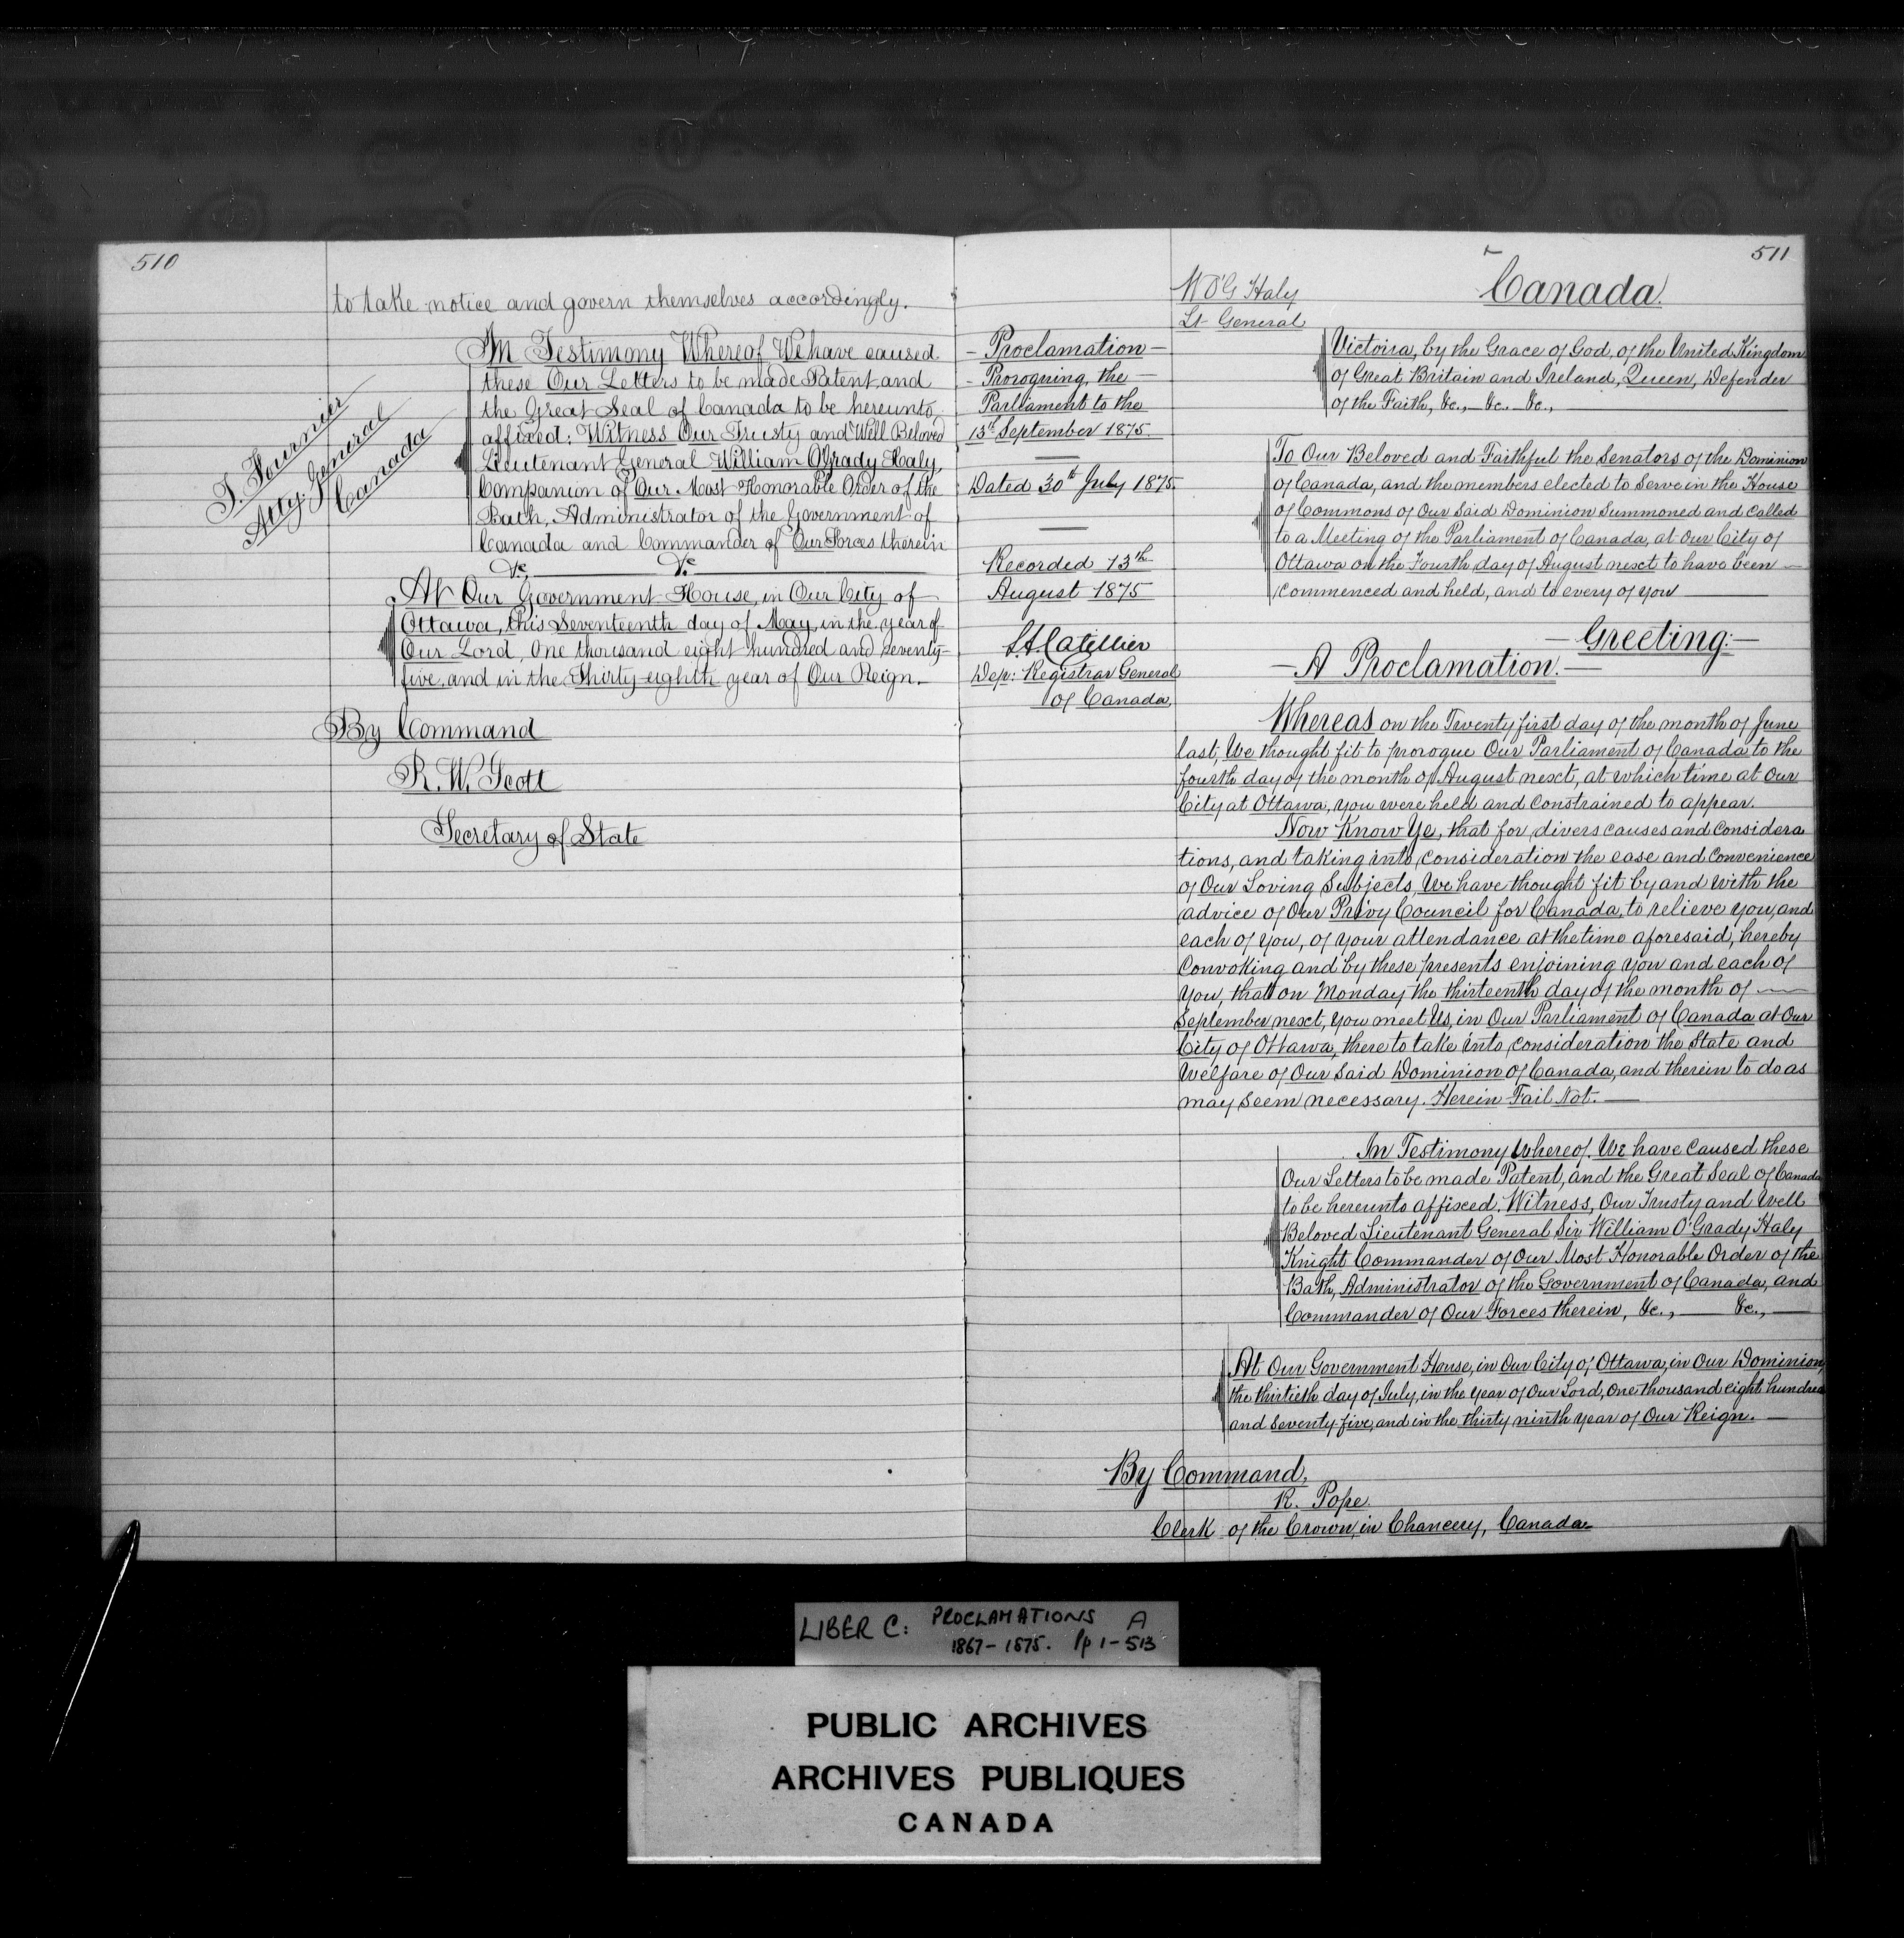 510
to take notice and govern themselves accordingly.
In Testimony Whereof We have caused
these Our Letters to be made Patent, and
the Great Seal of Canada to be hereunto,
affixed: Witness Our Trusty and Well Beloved
Lieutenant General William O'Grady Haly,
Companion of Our Most Honorable Order of the
Bath, Administrator of the Government of
Canada and Commander of Our Forces therein
&c, &c
At Our Government House, in Our City of
Ottawa, this Seventeenth day of May, in the year of
Our Lord, One thousand eight hundred and seventy-
five, and in the Thirty eighth year of Our Reign.
T. Fournier
Atty. General
Canada
By Command
R. W. Scott
Secretary of State
511
Canada.
W O'G Haly
Lt General
- Proclamation -
- Proroguing, the -
Parliament to the
13th September 1875.
Dated 30th July 1875.
Recorded 13th
August 1875
L.A. Catellier
Dep: Registrar General
of Canada,
Victoira, by the Grace of God, of the United Kingdom
of Great Britain and Ireland, Queen, Defender
of the Faith, &c., &c. &c.,
To Our Beloved and Faithful the Senators of the Dominion
of Canada, and the members elected to Serve in the House
of Commons of Our Said Dominion Summoned and Called
to a Meeting of the Parliament of Canada, at Our City of
Ottawa on the Fourth day of August next to have been
Commenced and held, and to every of you
- Greeting: -
- A Proclamation. -
Whereas on the Twenty first day of the month of June
last, We thought fit to prorogue Our Parliament of Canada to the
fourth day of the month of August next, at which time at Our
City at Ottawa, you were held and Constrained to appear.
Now Know Ye, that for divers causes and Considera
tions, and taking into consideration the ease and Convenience
of Our Loving Subjects, We have thought fit by and with the
advice of Our Privy Council for Canada, to relieve you, and
each of you, of your attendance at the time aforesaid, hereby
Convoking and by these presents enjoining you and each of
you, that on Monday the thirteenth day of the month of
September next, you meet Us, in Our Parliament of Canada at Our
City of Ottawa, there to take into consideration the State and
Welfare of Our Said Dominion of Canada, and therein to do as
may seem necessary. Herein Fail Not.
In Testimony Whereof. We have Caused these
Our Letters to be made Patent, and the Great Seal of Canada
to be hereunto affixed. Witness, Our Trusty and Well
Beloved Lieutenant General Sir William O'Grady Haly
Knight Commander of Our Most Honorable Order of the
Bath, Administrator of the Government of Canada, and
Commander of Our Forces therein, &c., &c.,
At Our Government House, in Our City of Ottawa, in Our Dominion,
the thirtieth day of July, in the year of Our Lord, One thousand eight hundred
and seventy five, and in the thirty ninth year of Our Reign.
By Command,
R. Pope.
Clerk of the Crown, in Chancery, Canada
LIBER C: PROCLAMATIONS A
1867-1875. Pp 1-513
PUBLIC ARCHIVES
ARCHIVES PUBLIQUES
CANADA